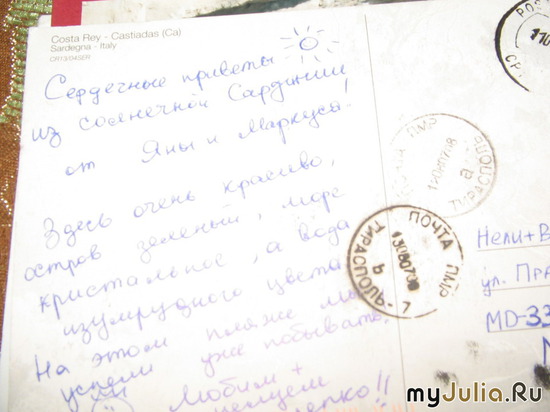 Costa Rey - Castiadas (Ca)
Sardegna - Italy
CR13/04SER
Сердечные приветы
из солнечной Сардинии
от Яны и Маркуса!
Здесь очень красиво,
остров зеленый, море
кристальное, а вода
изумрудного цвета
На этом пляже мы
успели уже побывать.
Любим +
целуем
крепко!!
ПОЧТА ПМР
ТИРАСПОЛЬ-7
130807
в
ПМР
ТИРАСПОЛЬ
а
Нели+В
ул. Пра
MD-33
myJulia.Ru